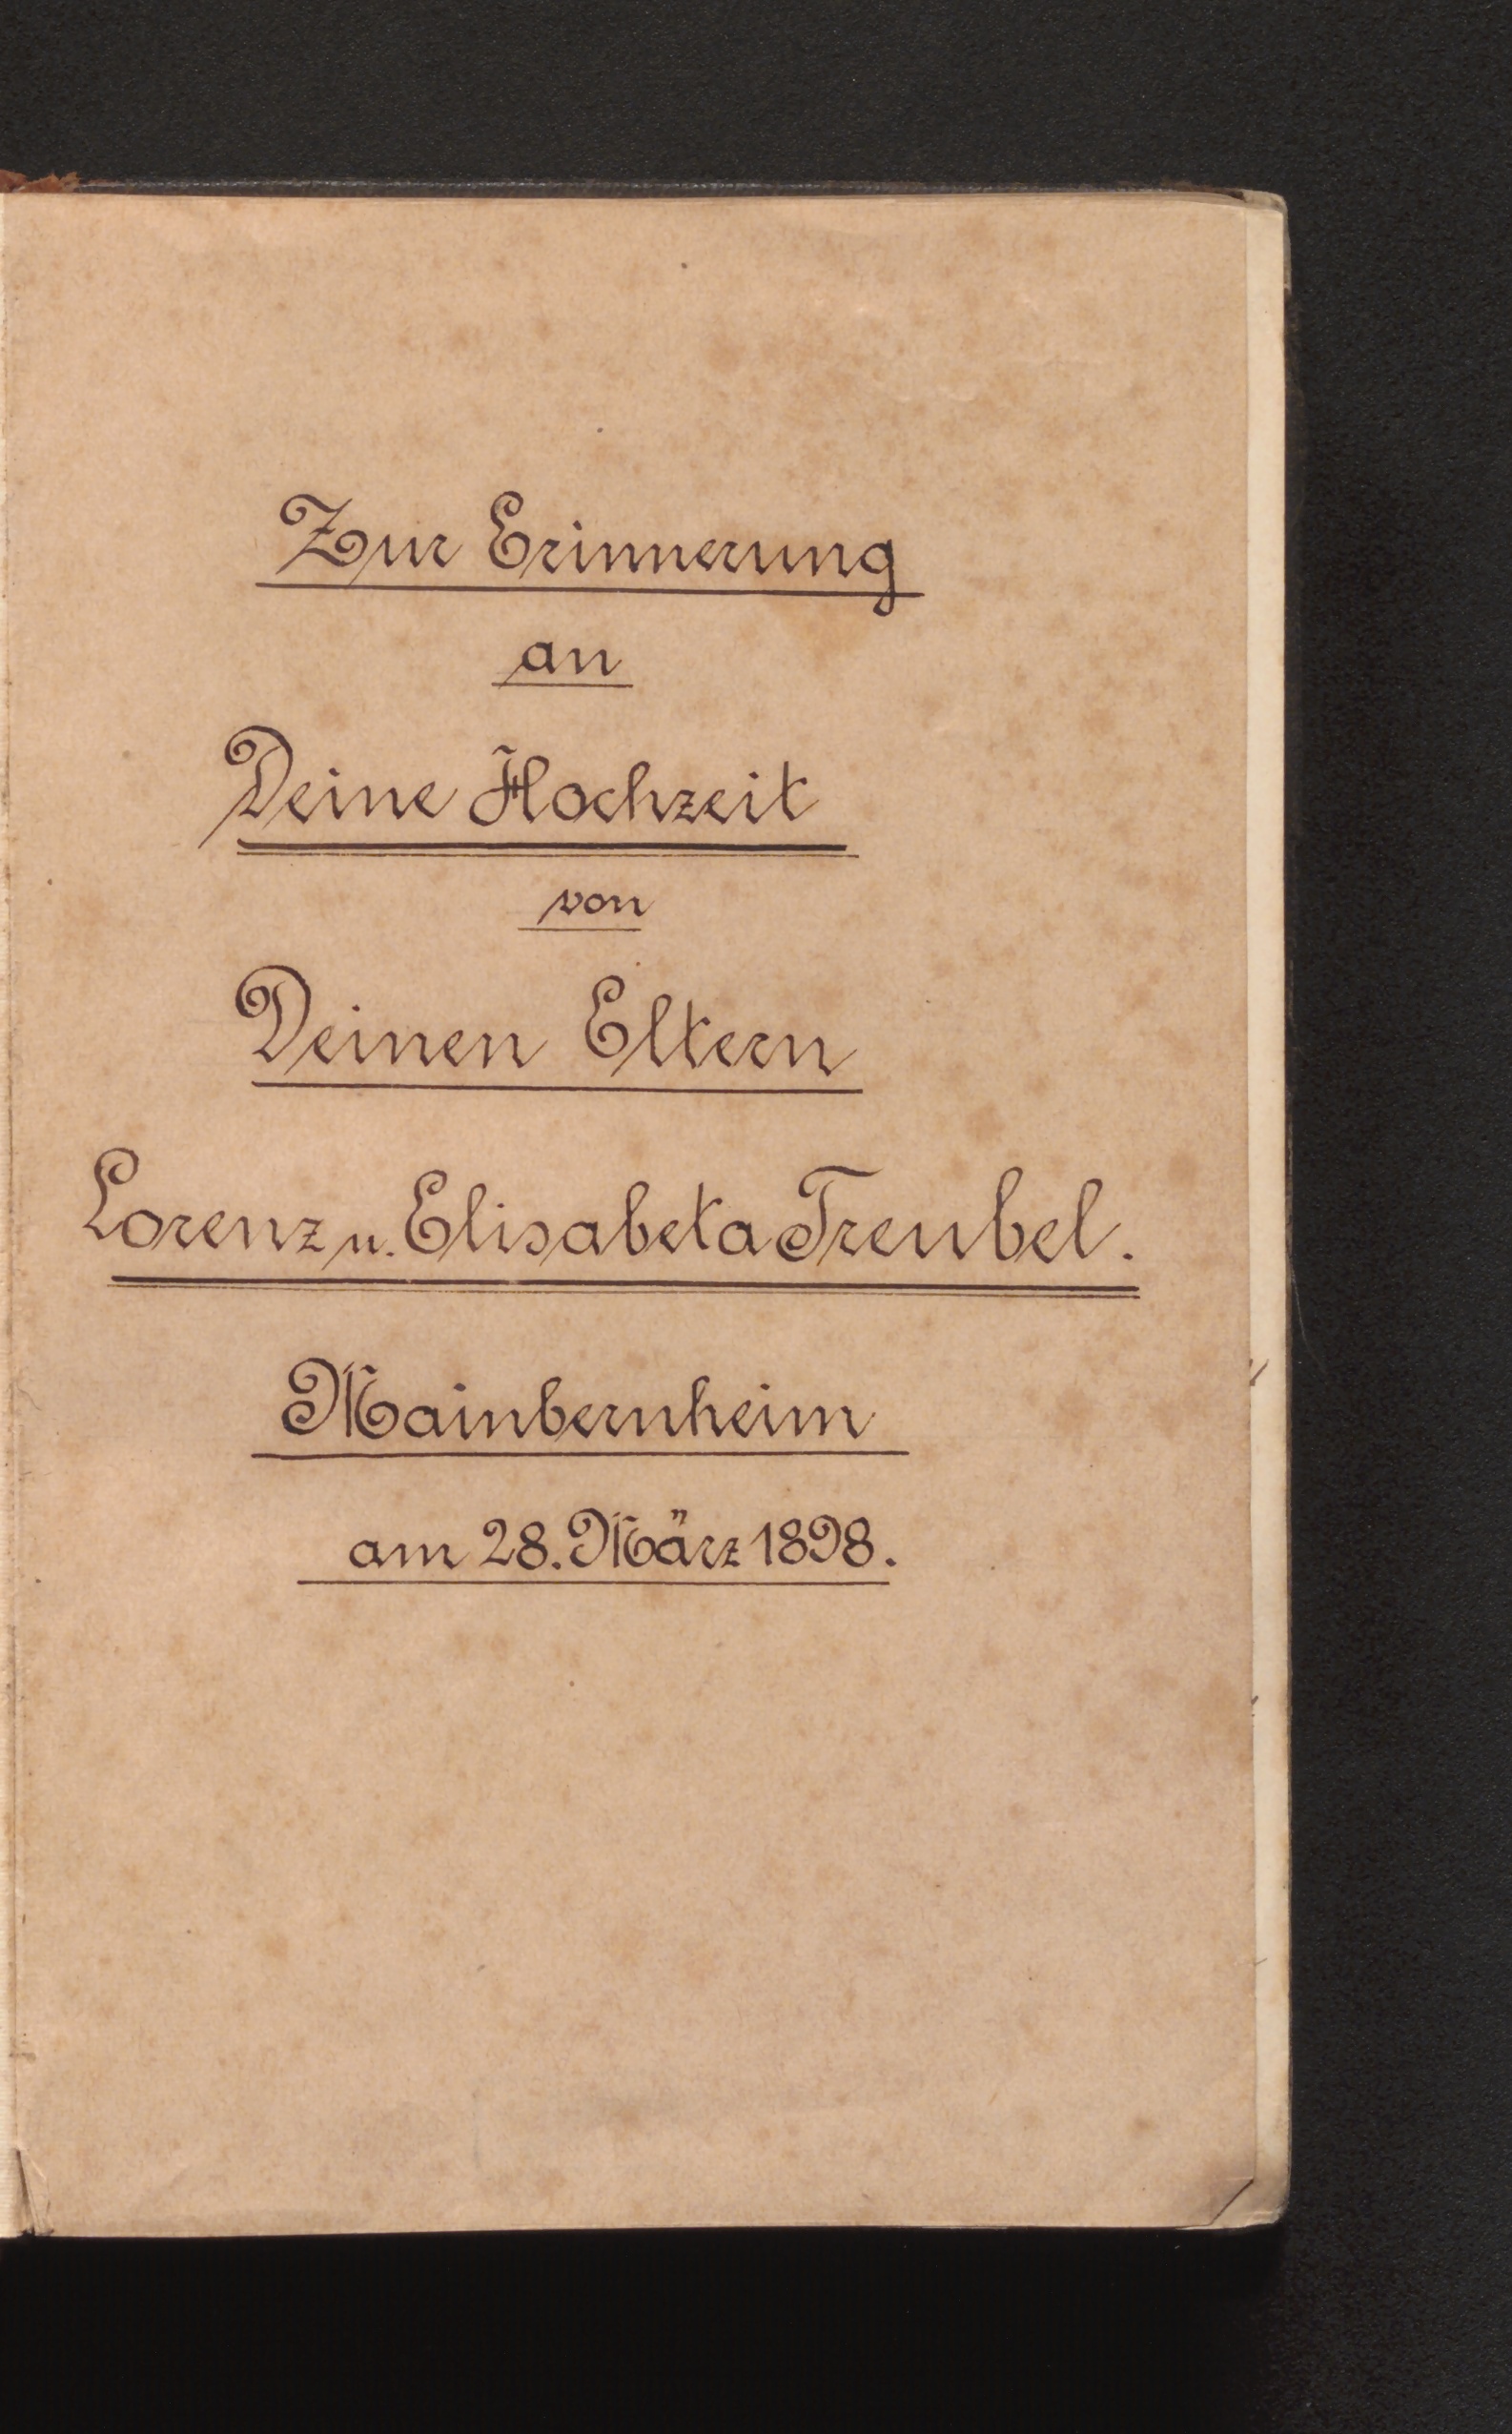 Zur Erinnerung
an
Deine Hochzeit
von
Deinen Eltern
Lorenz u. Elisabeta Treubel.
Mainbernheim
am 28. März 1898.